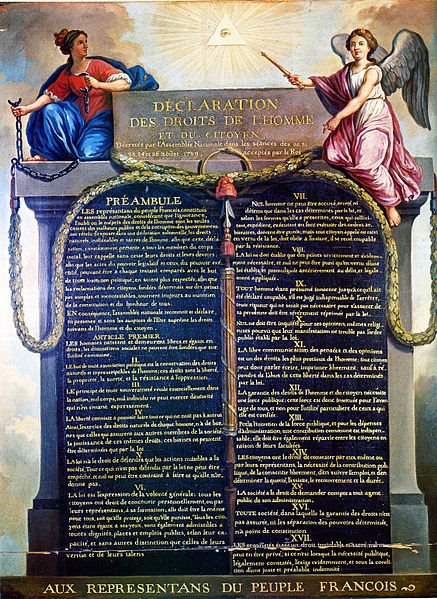 DÉCLARATION
DES DROITS DE L'HOMME
ET DU CITOYEN,
Décretés par l'Assemblée Nationale dans les séances des 20, 21
23, 24 et 26 août 1789, acceptés par le Roi
PRÉAMBULE
LES représantans du peuple Francois, constitués
en assemblée nationale, considérant que l'ignorance,
l'oubli ou le mépris des droits de l'homme sont les seules
causes des malheurs publics et de la corruption des gouvernemens
ont résolu d'exposer dans une déclaration solemnelle, les droits
naturels, inaliénables et sacrés de l'homme, afin que cette décla-
ration, constamment présente à tous les membres du corps
social, leur rappelle sans cesse leurs droits et leurs devoirs,
afin que les actes du pouvoir législatif et ceux du pouvoir exé-
cutif, pouvant être à chaque instant comparés avec le but
de toute institution politique, en soient plus respectés, afin que
les réclamations des citoyens, fondées désormais sur des princi-
pes simples et incontestables, tournent toujours au maintien
de la constitution et du bonheur de tous.
EN conséquence, l'assemblée nationale reconnoit et déclare,
en présence et sous les auspices de l'Être suprême les droits
suivans de l'homme et du citoyen.
ARTICLE PREMIER.
LES hommes naissent et demeurent libres et égaux en
droits, les distinctions sociales ne peuvent être fondées que sur
l'utilité commune.
II.
LE but de toute association politique est la conservation des droits
naturels et inprescriptibles de l'homme; ces droits sont la liberté,
la propriété, la sureté, et la résistance à l'oppression.
III.
LE principe de toute souveraineté réside essentiellement dans
la nation, nul corps, nul individu ne peut exercer d'autorité
qui n'en émane expressement.
IV.
LA liberté consiste à pouvoir faire tout ce qui ne nuit pas à autrui
Ainsi, l'exercice des droits naturels de chaque homme, n'a de bor-
nes que celles qui assurent aux autres membres de la société
la jouissance de ces mêmes droits; ces bornes ne peuvent
être déterminées que par la loi.
V.
LA loi n'a le droit de défendre que les actions nuisibles à la
société. Tout ce qui n'est pas défendu par la loi ne peut être
empêché, et nul ne peut être contraint à faire ce qu'elle n'or-
donne pas.
VI.
LA loi est l'expression de la volonté générale; tous les
citoyens ont droit de concourir personnellement, ou par
leurs représentans, à sa formation; elle doit être la même
pour tous, soit qu'elle protege, soit qu'elle punisse. Tous les cito-
yens étant égaux à ses yeux, sont également admissibles à
toutes dignités, places et emplois publics, selon leur ca-
pacité, et sans autres distinction que celles de leurs
vertus et de leurs talens
VII.
NUL homme ne peut être accusé, arreté, ni
détenu que dans les cas déterminés par la loi, et
selon les formes qu'elle a prescrites, ceux qui solli-
citent, expédient, exécutent ou font exécuter des ordres ar-
bitraires, doivent être punis; mais tout citoyen appelé ou saisi
en vertu de la loi, doit obéir à l'instant, il se rend coupable
par la résistance.
VIII.
LA loi ne doit établir que des peines strictement et évidem-
ment nécessaires, et nul ne peut être puni qu'en vertu d'une
loi établie et promulguée antérieurement au délit, et légale-
ment appliquée.
IX.
TOUT homme étant présumé innocent jusqu'à ce qu'il ait
été déclaré coupable, s'il est jugé indispensable de l'arrêter,
toute rigueur qui ne serait pas nécessaire pour s'assurer de
sa personne doit être sévèrement réprimée par la loi.
X.
NUL ne doit être inquiété pour ses opinions, mêmes religi-
euses pourvu que leur manifestation ne trouble pas l'ordre
public établi par la loi.
XI.
LA libre communication des pensées et des opinions
est un des droits les plus precieux de l'homme; tout citoyen
peut donc parler écrire, imprimer librement; sauf à ré-
pondre de l'abus de cette liberté dans les cas déterminés
par la loi.
XII.
LA garantie des droits de l'homme et du citoyen nécessite
une force publique; cette force est donc instituée pour l'avan-
tage de tous, et non pour l'utilité particuliere de ceux à qui
elle est confiée.
XIII.
POUR l'entretien de la force publique, et pour les dépenses
d'administration, une contribution commune est indispen-
sable; elle doit être également répartie entre les citoyens en
raison de leurs facultés.
XIV.
LES citoyens ont le droit de constater par eux même ou
par leurs représentans, la nécessité de la contribution pub-
lique, de la consentir librement, d'en suivre l'emploi, et d'en
déterminer la quotité, l'assiette, le recouvrement et la durée.
XV.
LA société a le droit de demander compte à tout agent
public de son administration.
XVI.
TOUTE société, dans laquelle la garantie des droits n'est
pas assurée, ni la séparation des pouvoirs déterminée,
n'a point de constitution.
XVII.
LES propriétés étant un droit inviolable et sacré, nul ne
peut en être privé, si ce n'est lorsque la nécessité publique,
légalement constatée, l'exige évidemment, et sous la condi-
tion d'une juste et préalable indemnité.
AUX REPRESENTANS DU PEUPLE FRANCOIS